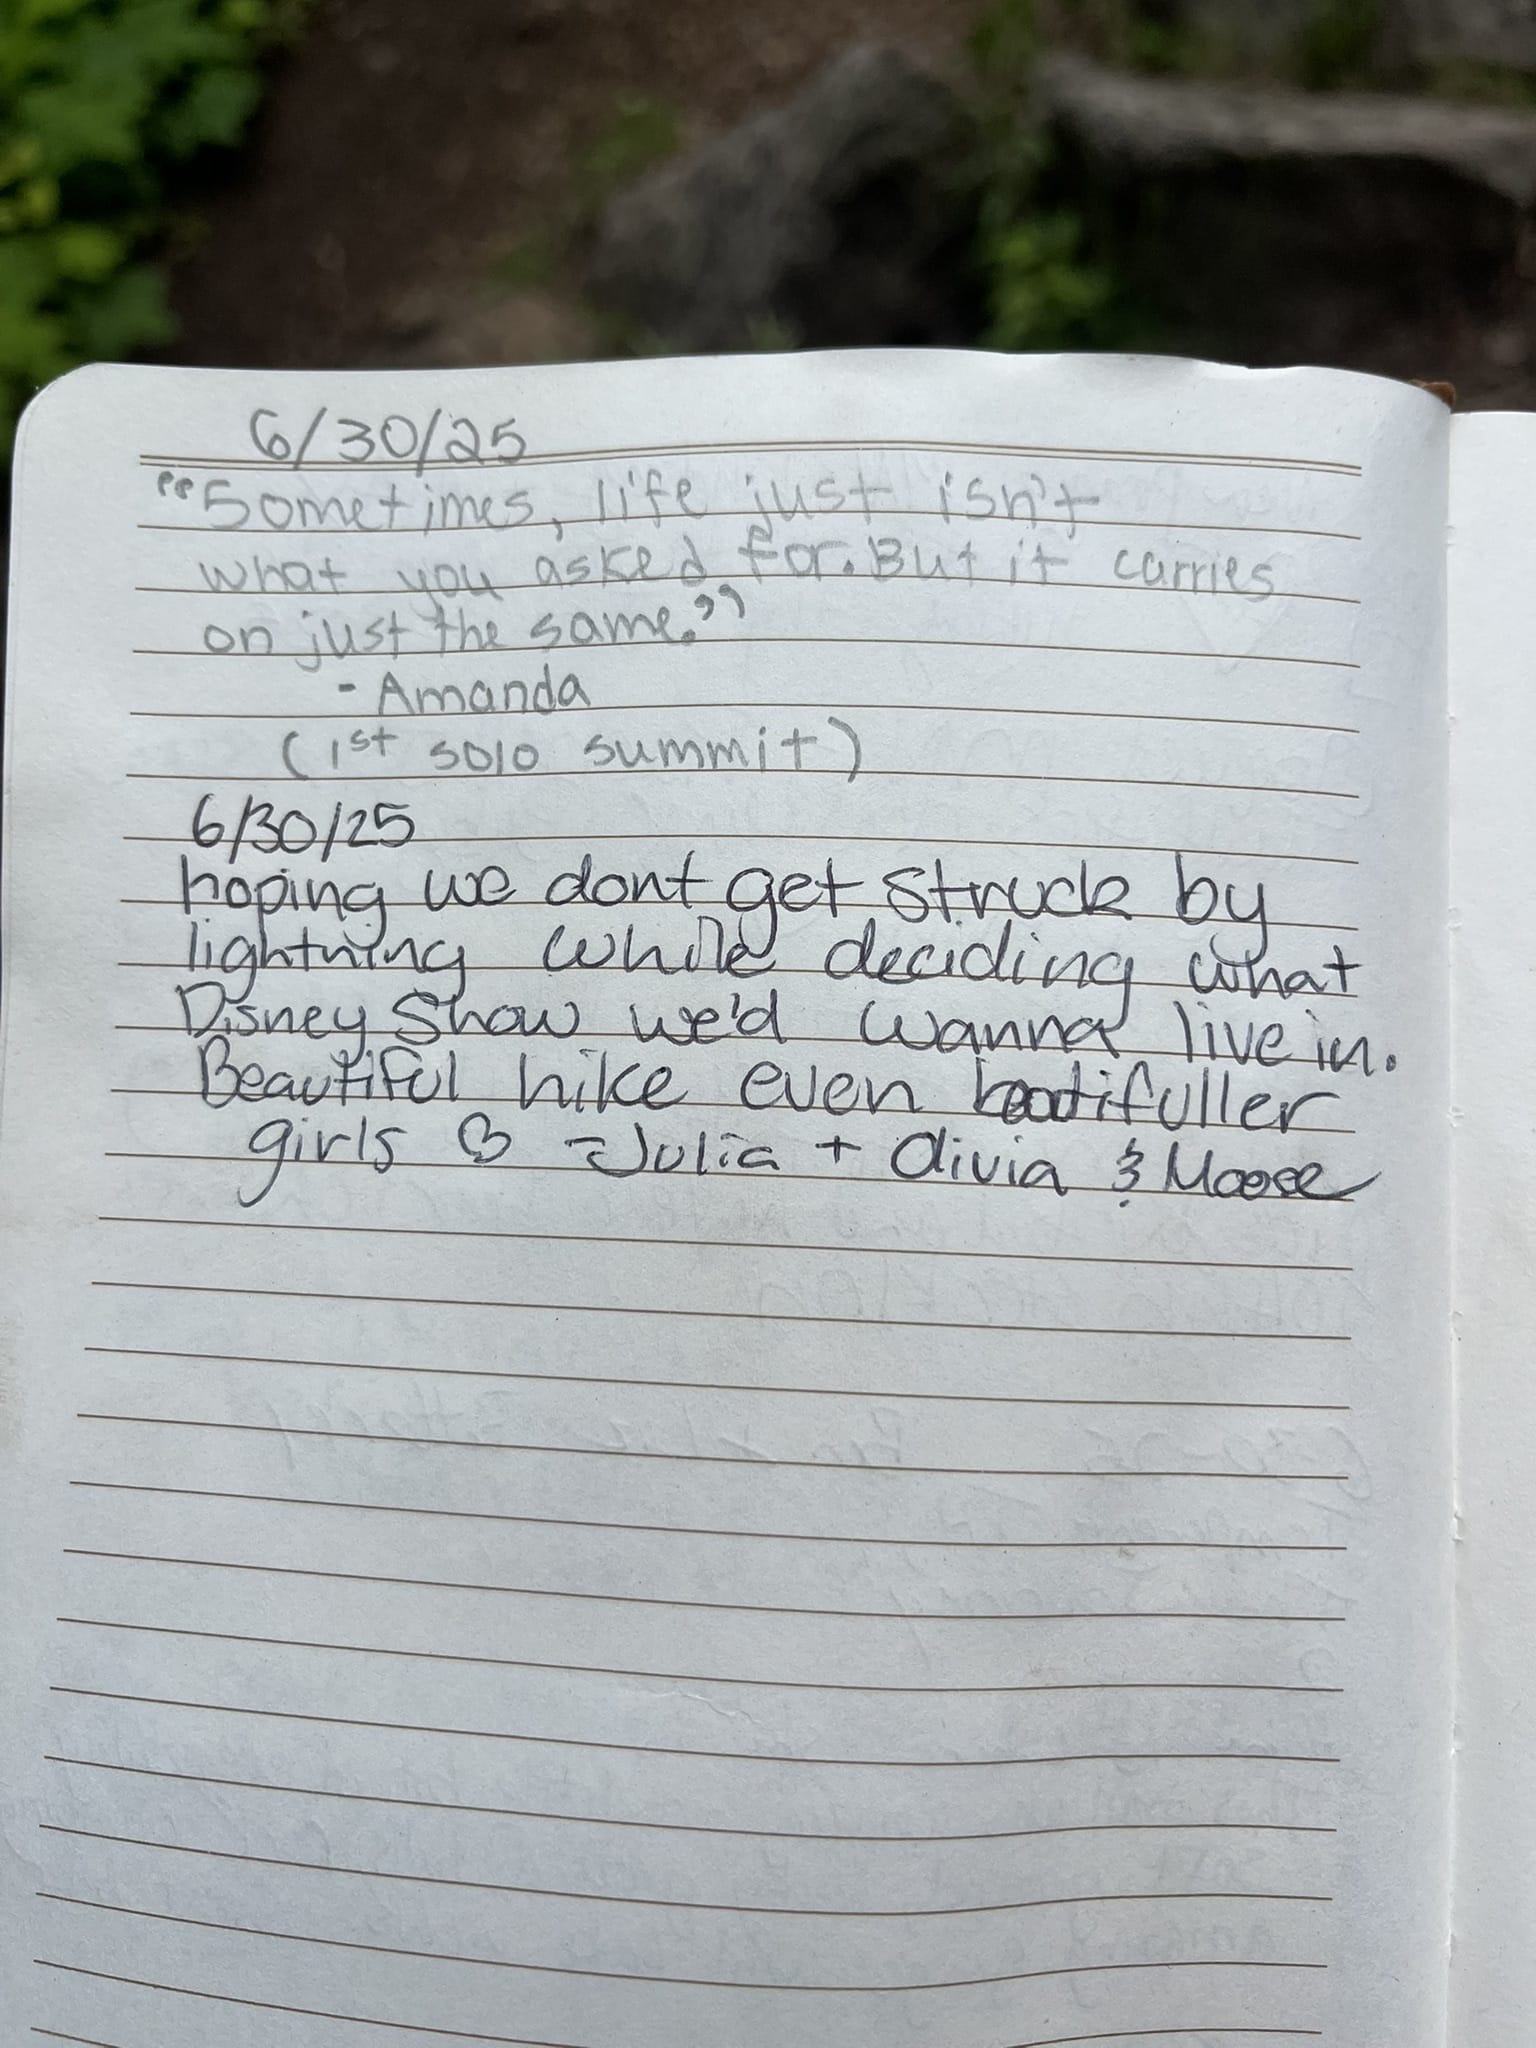 6/30/25
"Sometimes, life just isn't
what you asked for. But it carries
on just the same."
- Amanda
(1st solo summit)
6/30/25
hoping we dont get struck by
lightning while deciding what
Disney Show we'd wanna live in.
Beautiful hike even beatifuller
girls ♡ - Julia + Olivia & Moose